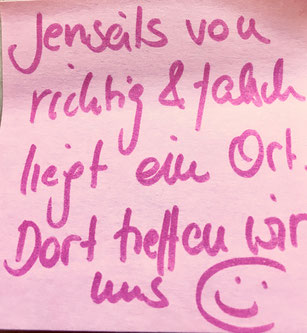 Jenseits von
richtig & falsch
liegt ein Ort.
Dort treffen wir
uns